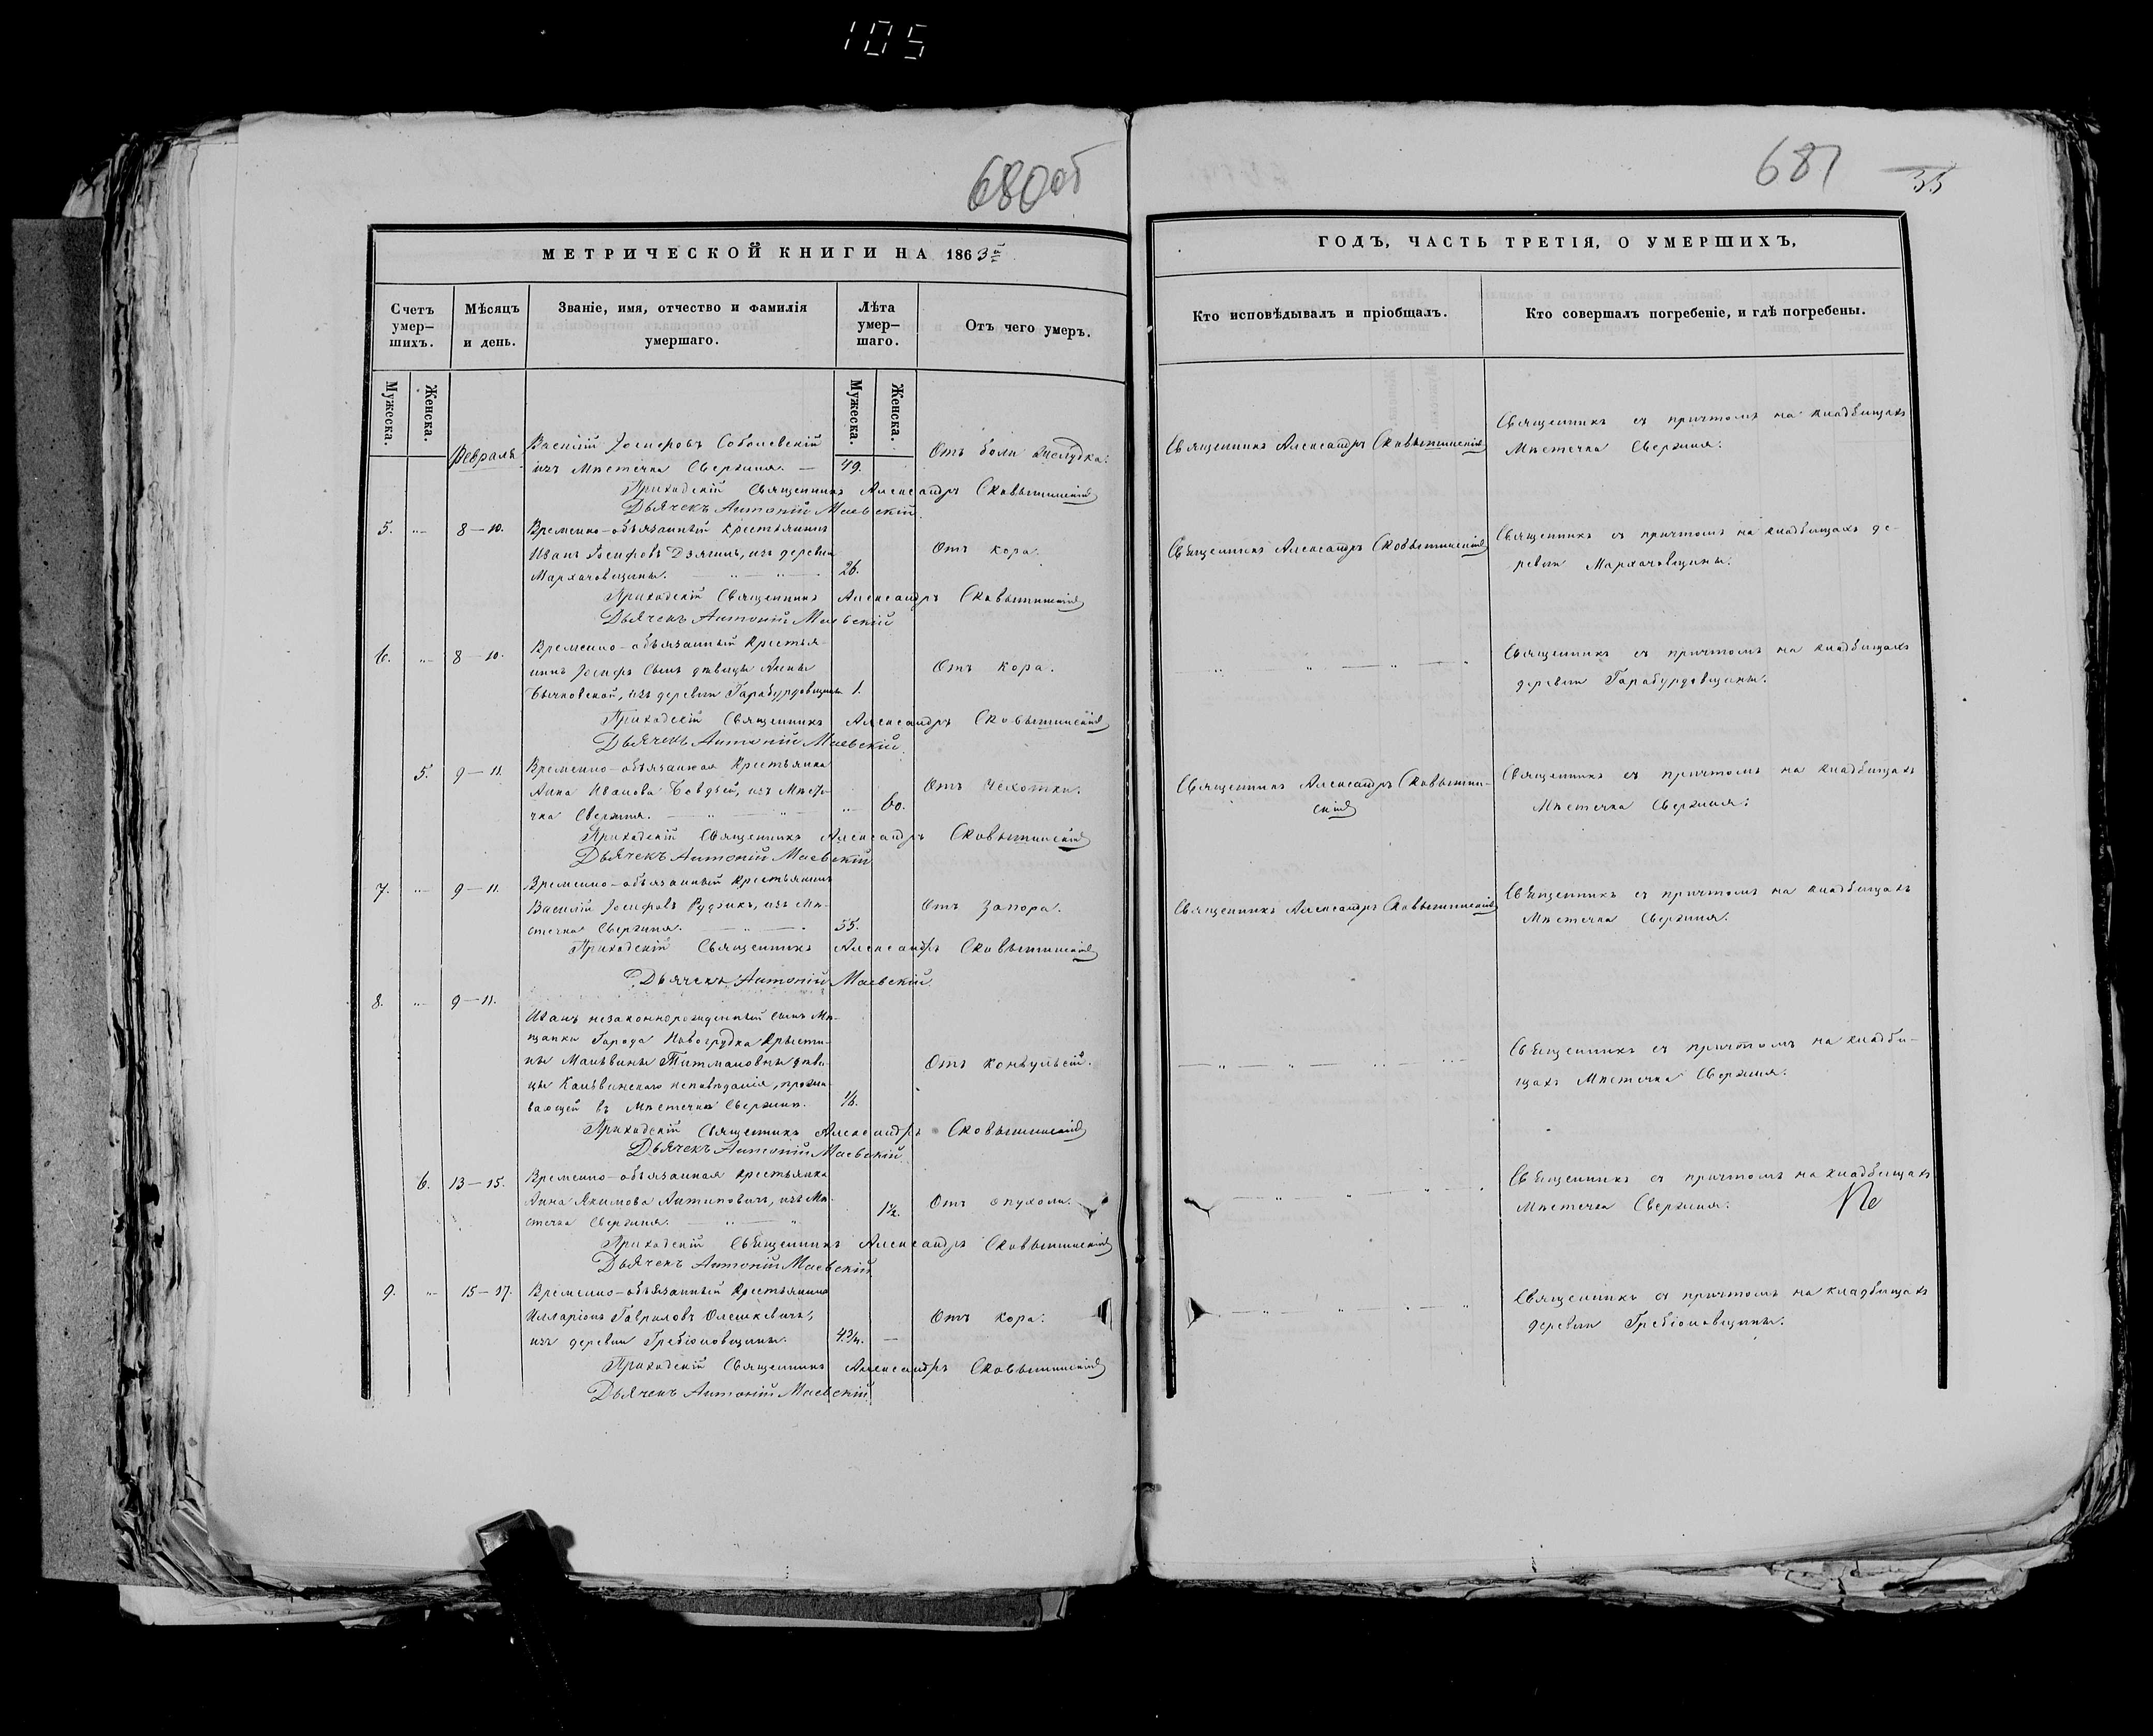 105
680об
МЕТРИЧЕСКОЙ КНИГИ НА 1863й
Счетъ умер–шихъ.
Мѣсяцъ и день.
Званіе, имя, отчество и фамилія умершаго.
Лѣта умер–шаго.
Отъ чего умеръ.
Мужеска.
Женска.
Мужеска.
Женска.
Февраль
Василій Іосифовъ Соболевскій
изъ Мѣстечка Свержня. —
49.
Отъ боли желудка.
Приходскій Священникъ Александръ
Дьячекъ Антоній Маевскій.
5. „ 8–10.
Временно-обязанный Крестьянинъ
Иванъ Іосифовъ изъ деревни
26.
Отъ кора.
Приходскій Священникъ Александръ
Дьячекъ Антоній Маевскій
6. „ 8–10.
Временно-обязанный Крестья-
нинъ Іосифъ сынъ дѣвицы Анны
изъ деревни
1.
Отъ кора.
Приходскій Священникъ Александръ
Дьячекъ Антоній Маевскій.
5. 9–11.
Временно-обязанная Крестьянка
Анна Иванова изъ Мѣсте-
чка Свержня.
„ 60.
Отъ чехотки.
Приходскій Священникъ Александръ
Дьячекъ Антоній Маевскій
7. „ 9–11.
Временно-обязанный Крестьянинъ
Василій Іосифовъ Рудзикъ, изъ Мѣ-
стечка Свержня.
55.
Отъ запора.
Приходскій Священникъ Александръ
Дьячекъ Антоній Маевскій.
8. „ 9–11.
Иванъ незаконнорожденный сынъ Мѣ-
щанки Города Новогрудка Кристи-
ны дѣви-
цы Кальвинскаго исповѣданія, прожи-
вающей въ Мѣстечкѣ Свержнѣ.
Отъ конвульсій.
Приходскій Священникъ Александръ
Дьячекъ Антоній Маевскій
6. 13–15.
Временно-обязанная Крестьянка
Анна Якимова Антиповичъ, изъ Мѣ-
стечка Свержня.
1½.
Отъ опухоли.
Приходскій Священникъ Александръ
Дьячекъ Антоній Маевскій
9. „ 15–17.
Временно-обязанный Крестьянинъ
Илларіонъ Гавриловъ Олешкевичъ,
изъ деревни
4¾. —
Отъ кора.
Приходскій Священникъ Александръ
Дьячекъ Антоній Маевскій.
681
35
ГОДЪ, ЧАСТЬ ТРЕТІЯ, О УМЕРШИХЪ,
Кто исповѣдывалъ и пріобщалъ.
Кто совершалъ погребеніе, и гдѣ погребены.
Священникъ Александръ
Священникъ съ причтомъ на кладбищахъ
Мѣстечка Свержня.
Священникъ Александръ
Священникъ съ причтомъ на кладбищахъ де-
ревни
Священникъ съ причтомъ на кладбищахъ
деревни
Священникъ Александръ
Священникъ съ причтомъ на кладбищахъ
Мѣстечка Свержня.
Священникъ Александръ
Священникъ съ причтомъ на кладбищахъ
Мѣстечка Свержня.
Священникъ съ причтомъ на кладби-
щахъ Мѣстечка Свержня.
Священникъ съ причтомъ на кладбищахъ
Мѣстечка Свержня.
Священникъ съ причтомъ на кладбищахъ
деревни